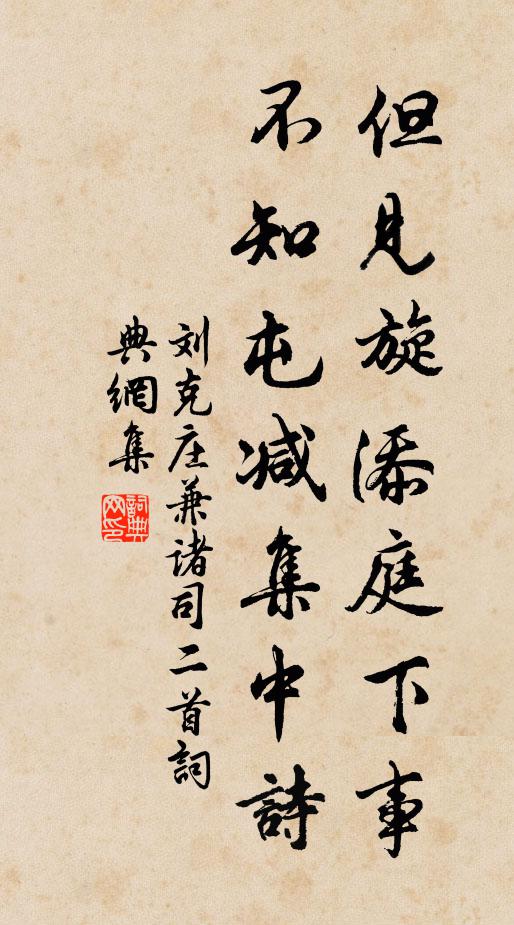 但见旋添庭下事
不知屯减集中詩
刘克庄兼诸司二首詞
典網集
詞典網印